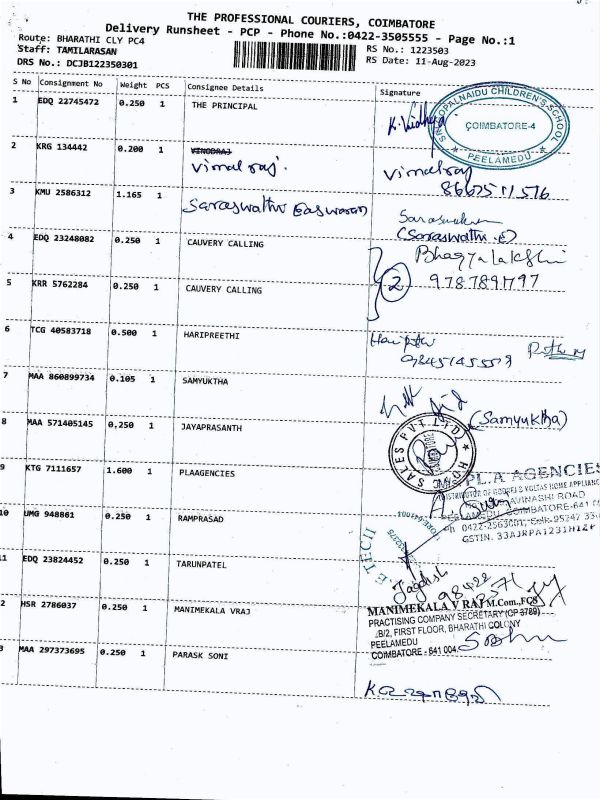 THE PROFESSIONAL COURIERS, COIMBATORE
Delivery Runsheet - PCP - Phone No.:0422-3505555 - Page No.:1
Route: BHARATHI CLY PC4
Staff: TAMILARASAN
DRS No.: DCJB122350301
RS No.: 1223503
RS Date: 11-Aug-2023
S No Consignment No Weight PCS Consignee Details Signature
1 EDQ 22745472 0.250 1 THE PRINCIPAL
K. Vidhya
CHILDREN'S SCHOOL
COIMBATORE-4
★ PEELAMEDU ★
2 KRG 134442 0.200 1 VINODRAJ
Vimal raj. Vimalraj
3 KMU 2586312 1.165 1
Saraswathi Easwaran
(Saraswathi. E)
4 EDQ 23248082 0.250 1 CAUVERY CALLING
Bhagyalakshmi
2
5 KRR 5762284 0.250 1 CAUVERY CALLING
6 TCG 40583718 0.500 1 HARIPREETHI
7 MAA 860899734 0.105 1 SAMYUKTHA
(Samyuktha)
8 MAA 571405145 0.250 1 JAYAPRASANTH
SALES PVT. LTD.
9 KTG 7111657 1.600 1 PLAAGENCIES
P.L.A AGENCIES
DISTRIBUTOR OF GODREJ & VOLTAS HOME APPLIANC
AVINASHI ROAD
PEELAMEDU, COIMBATORE-641 0
GSTIN. 33AJRPA1231H1ZF
10 UMG 948861 0.250 1 RAMPRASAD
11 EDQ 23824452 0.250 1 TARUNPATEL
Jagdish
2 HSR 2786037 0.250 1 MANIMEKALA VRAJ
MANIMEKALA V RAJ M.Com.,FCS
PRACTISING COMPANY SECRETARY (CP 3789)
/B/2, FIRST FLOOR, BHARATHI COLONY
PEELAMEDU
COIMBATORE - 641 004.
3 MAA 297373695 0.250 1 PARASK SONI